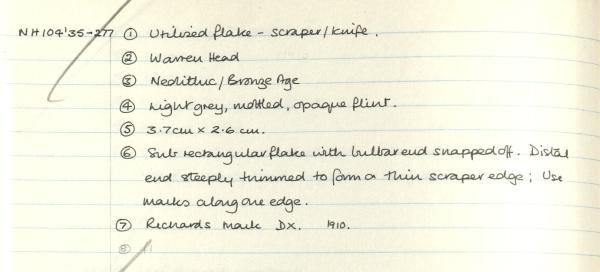 NH104'35-277 ① Utilized flake - scraper/knife.
② Warren Head
③ Neolithic/Bronze Age
④ Light grey, mottled, opaque flint.
⑤ 3.7cm x 2.6 cm.
⑥ Sub rectangular flake with bulbar end snapped off. Distal
end steeply trimmed to form a thin scraper edge; Use
marks along one edge.
⑦ Richards Mark DX. 1910.
⑧